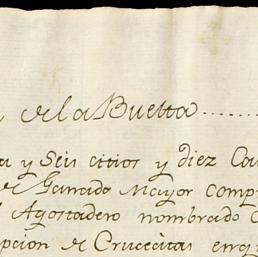 de la Buelta
a y Seis citios y diez Ca
de Ganado Mayor comp
Agostadero nombrado
pcion de Crucecitas en